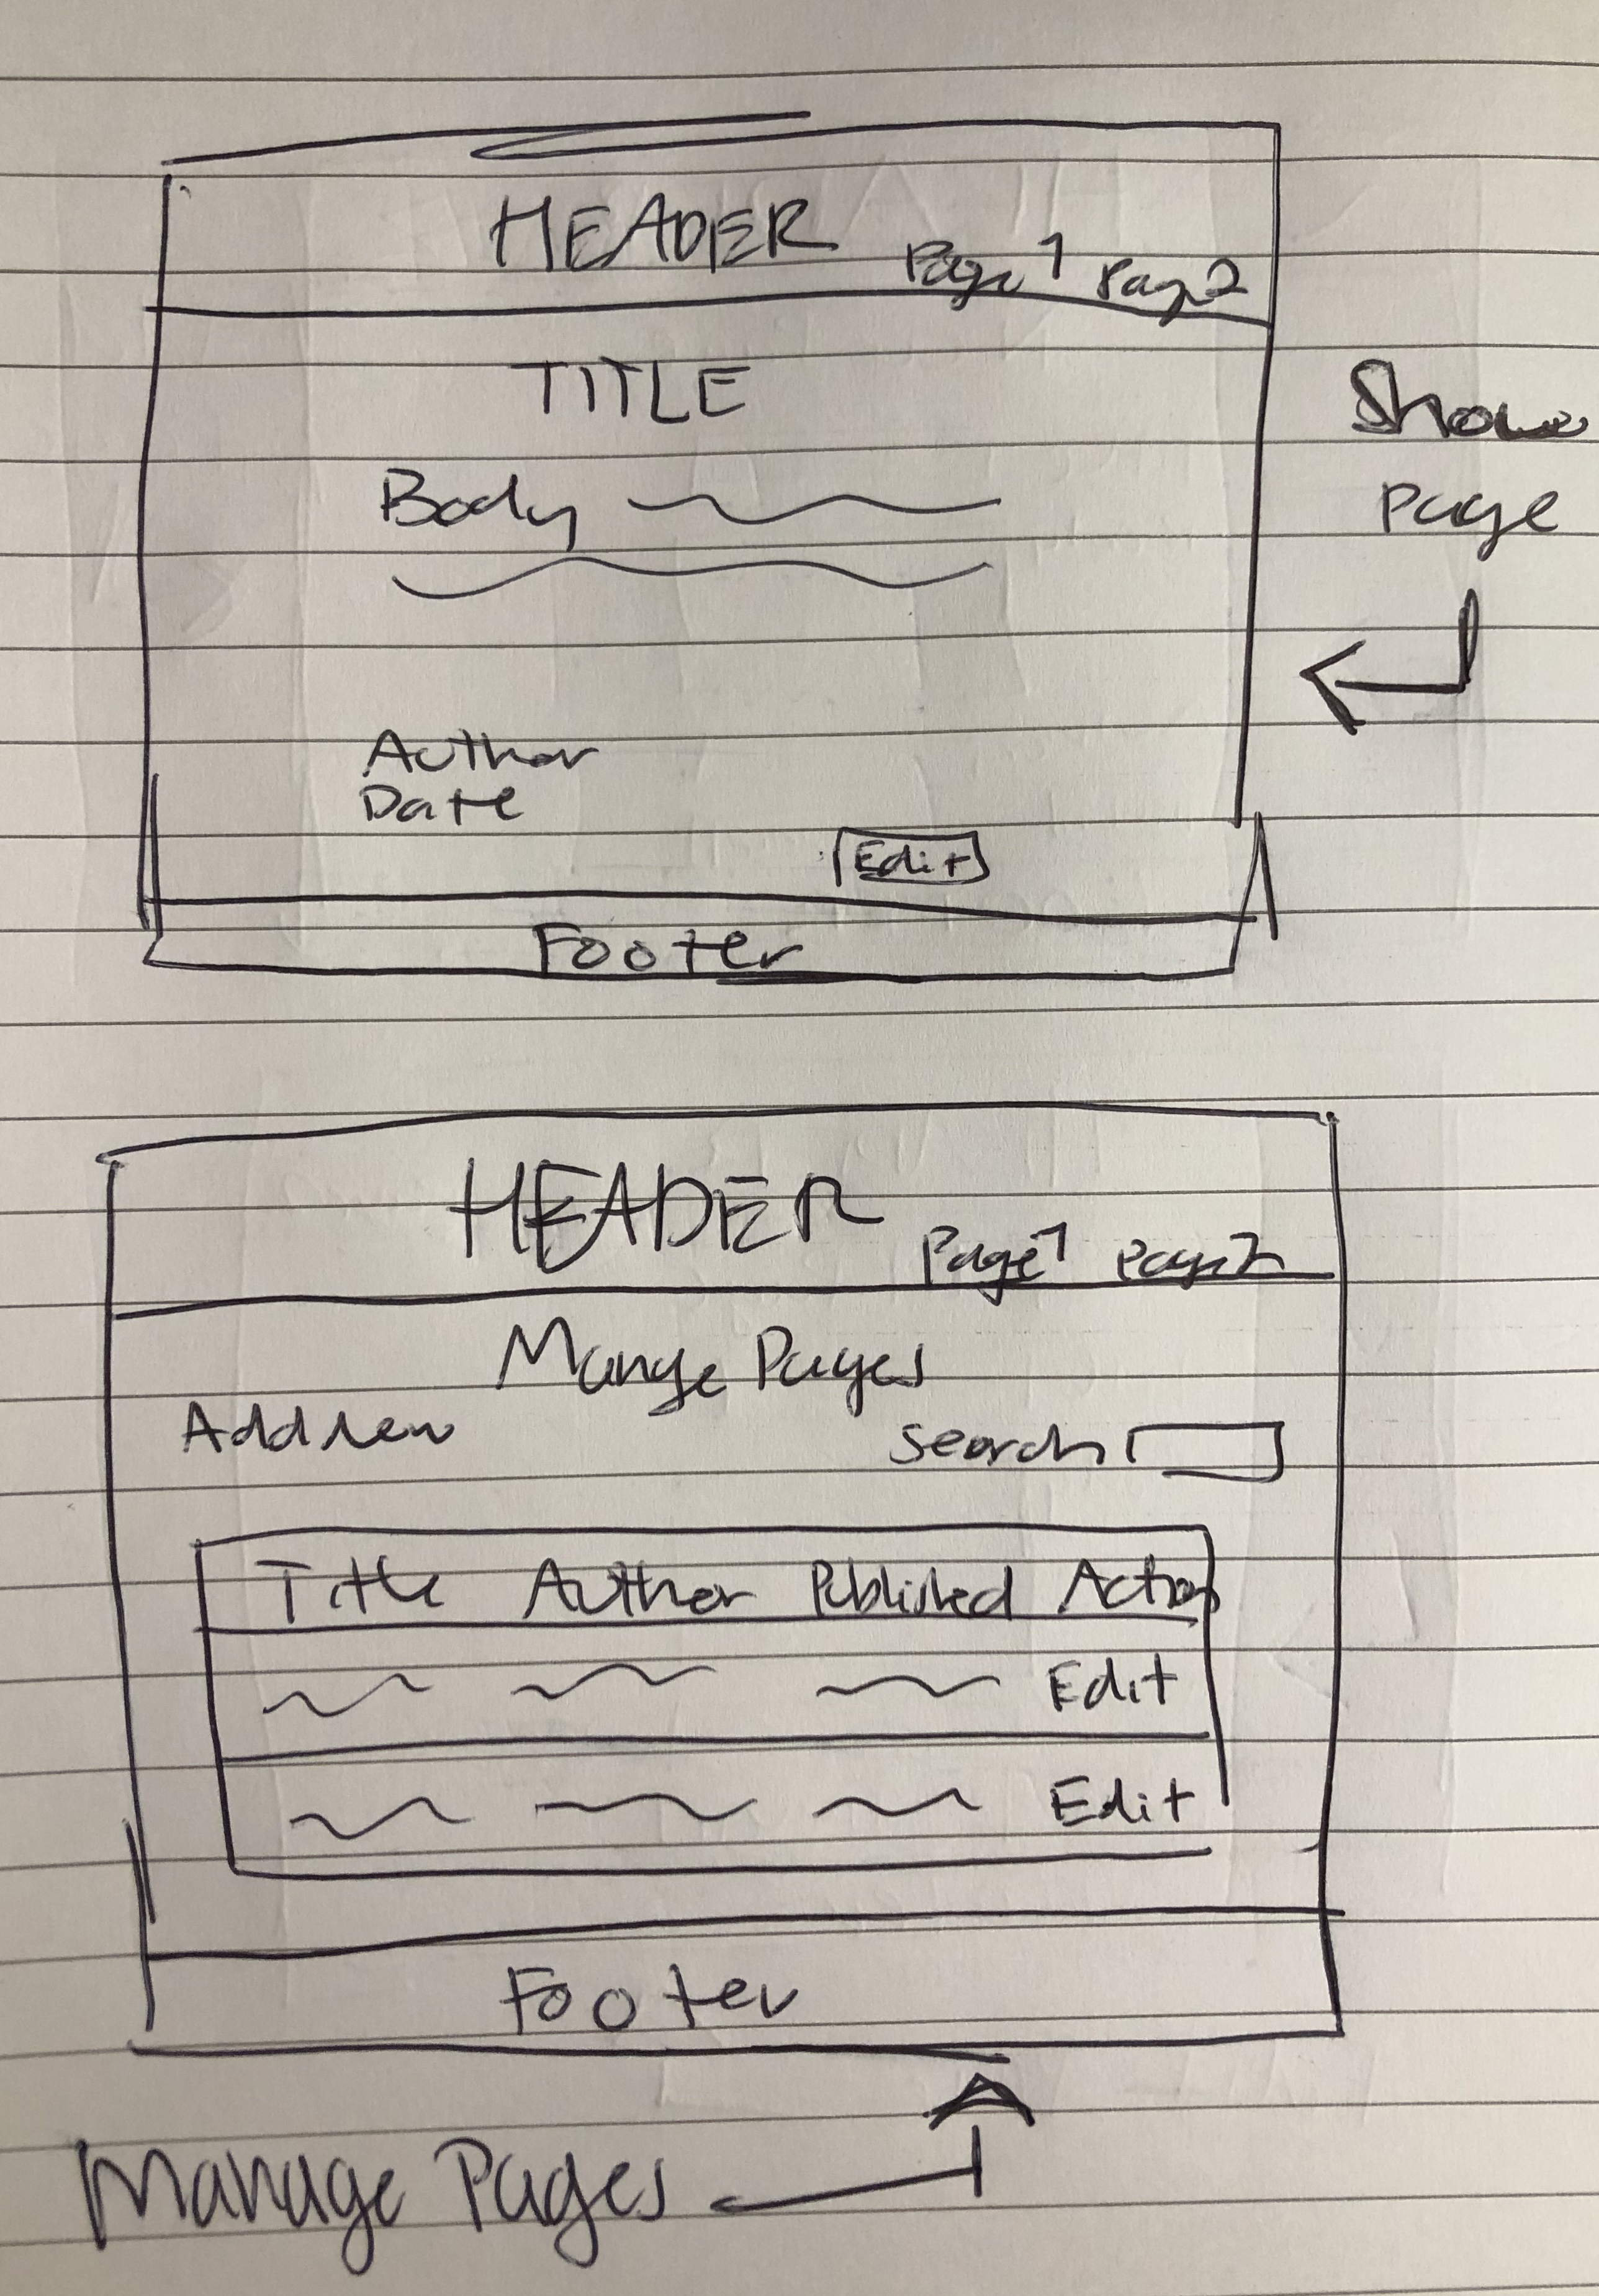 HEADER
Page 1 Page 2
TITLE
Body
Author
Date
Edit
Footer
Show
Page
HEADER
Page 1 Page 2
Mange Pages
Add new
search
Title Author Published Action
Edit
Edit
Footer
Manage Pages